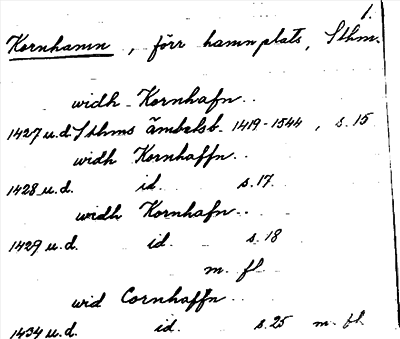 1.
Kornhamn, förr hamnplats, Sthm.
widh Kornhafn..
1427 u.d. Sthms ämbetsb. 1419-1544, s. 15
widh Kornhaffn..
1428 u.d. id. s. 17.
widh Kornhafn..
1429 u.d. id. s. 18
m. fl.
wid Cornhaffn..
1434 u.d. id. s. 25 m. fl.